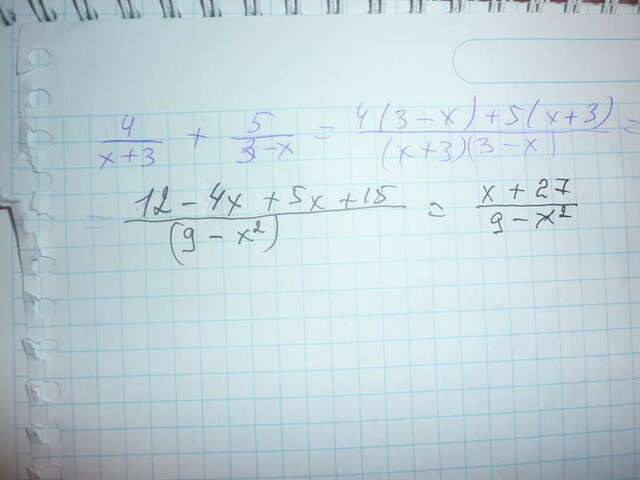 4/(x+3) + 5/(3-x) = (4(3-x)+5(x+3))/((x+3)(3-x)) =
= (12-4x+5x+15)/((9-x²)) = (x+27)/(9-x²)